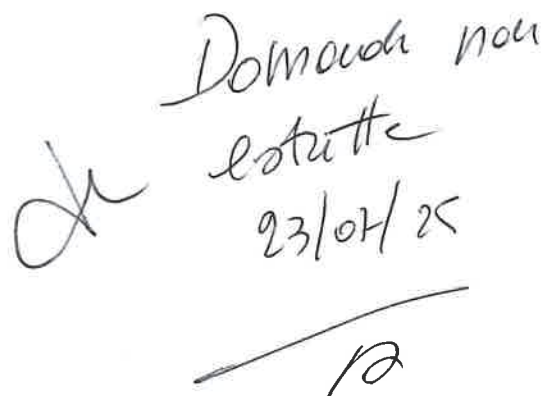 Domande non
estratte
23/07/25